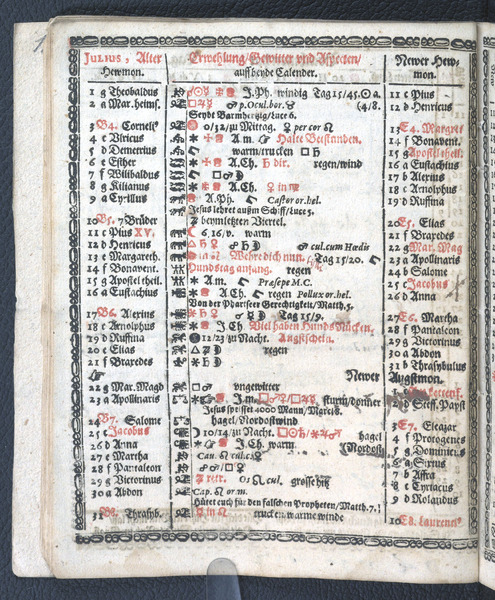 JULIUS, Alter Erwehlung/Gewitter vnd Aspecten/ Newer Hew-
Hewmon. auff beyde Calender. mon.
1 g Theobaldus J.Ph. windig Tag 15/45. a. 11 c Pius
2 a Mar.heims. p.Ocul.bor. (4/8. 12 d Henricus
Seydt Barmhertzig/Luce 6.
3 B4. Cornelius 0/32/zu Mittag. per cor 13 E4. Margret
4 c Vlricus A m. Halte Beistanden. 14 f Bonavent.
5 d Demetrius warm/trucken 15 g Apostel theil.
6 e Esther A.Ch. dir. regen/wind 16 a Eustachius
7 f Wilibaldus 17 b Alexius
8 g Kilianus A.Ch. in 18 c Arnolphus
9 a Cyrillus A.Ph. Castor or.hel. 19 d Ruffina
Jesus lehret außm Schiff/Luce 5.
10 B5. 7 Brüder dem letzten Viertel. 20 E5. Elias
11 c Pius XV. 6.16.v. warm 21 f Braxedes
12 d Henricus cul.cum Hœdis 22 g Mar. Mag
13 e Margareth. Wehre dich nun. Tag 15/20. 23 a Apollinaris
14 f Bonavent. Hundstag anfang. regen 24 b Salome
15 g Apostel theil. A m. Præsepe M.C. 25 c Jacobus
16 a Eustachius A.Ch. regen Pollux or.hel. 26 d Anna
Von der Phariseer Gerechtigkeit/Matth.5
17 B6. Alexius Tag 15/9. 27 E6. Martha
18 c Arnolphus J.Ch Viel haben Hunds Mücken. 28 f Pantaleon
19 d Ruffina 12/23/zu Nacht. Augstschein. 29 g Victorinus
20 e Elias regen 30 a Abdon
21 f Braxedes 31 b Thrasybulus
Newer Augstmon.
22 g Mar. Magd vngewitter
23 a Apollinaris J.m. sturm/donner 2 d Steff. Papst
Jesus speiset 4000 Mann/Marci 8.
24 B7. Salome hagel/Nordostwind 3 E7. Eleazar
25 c Jacobus 10/14/zu Nacht. hagel 4 f Protogenes
26 d Anna J.Ch. warm (Nordost 5 g Dominicus
27 e Martha Can. cul. 6 a Sixtus
28 f Pantaleon 7 b Affra
29 g Victorinus retr. grosse hitz 8 c Cyriacus
30 a Abdon Cap. or m. 9 d Rolandus
Hütet euch für den falschen Propheten/Matth.7.
31 B8. Thrasyb. in trucken warme winde 10 E8. Laurentius